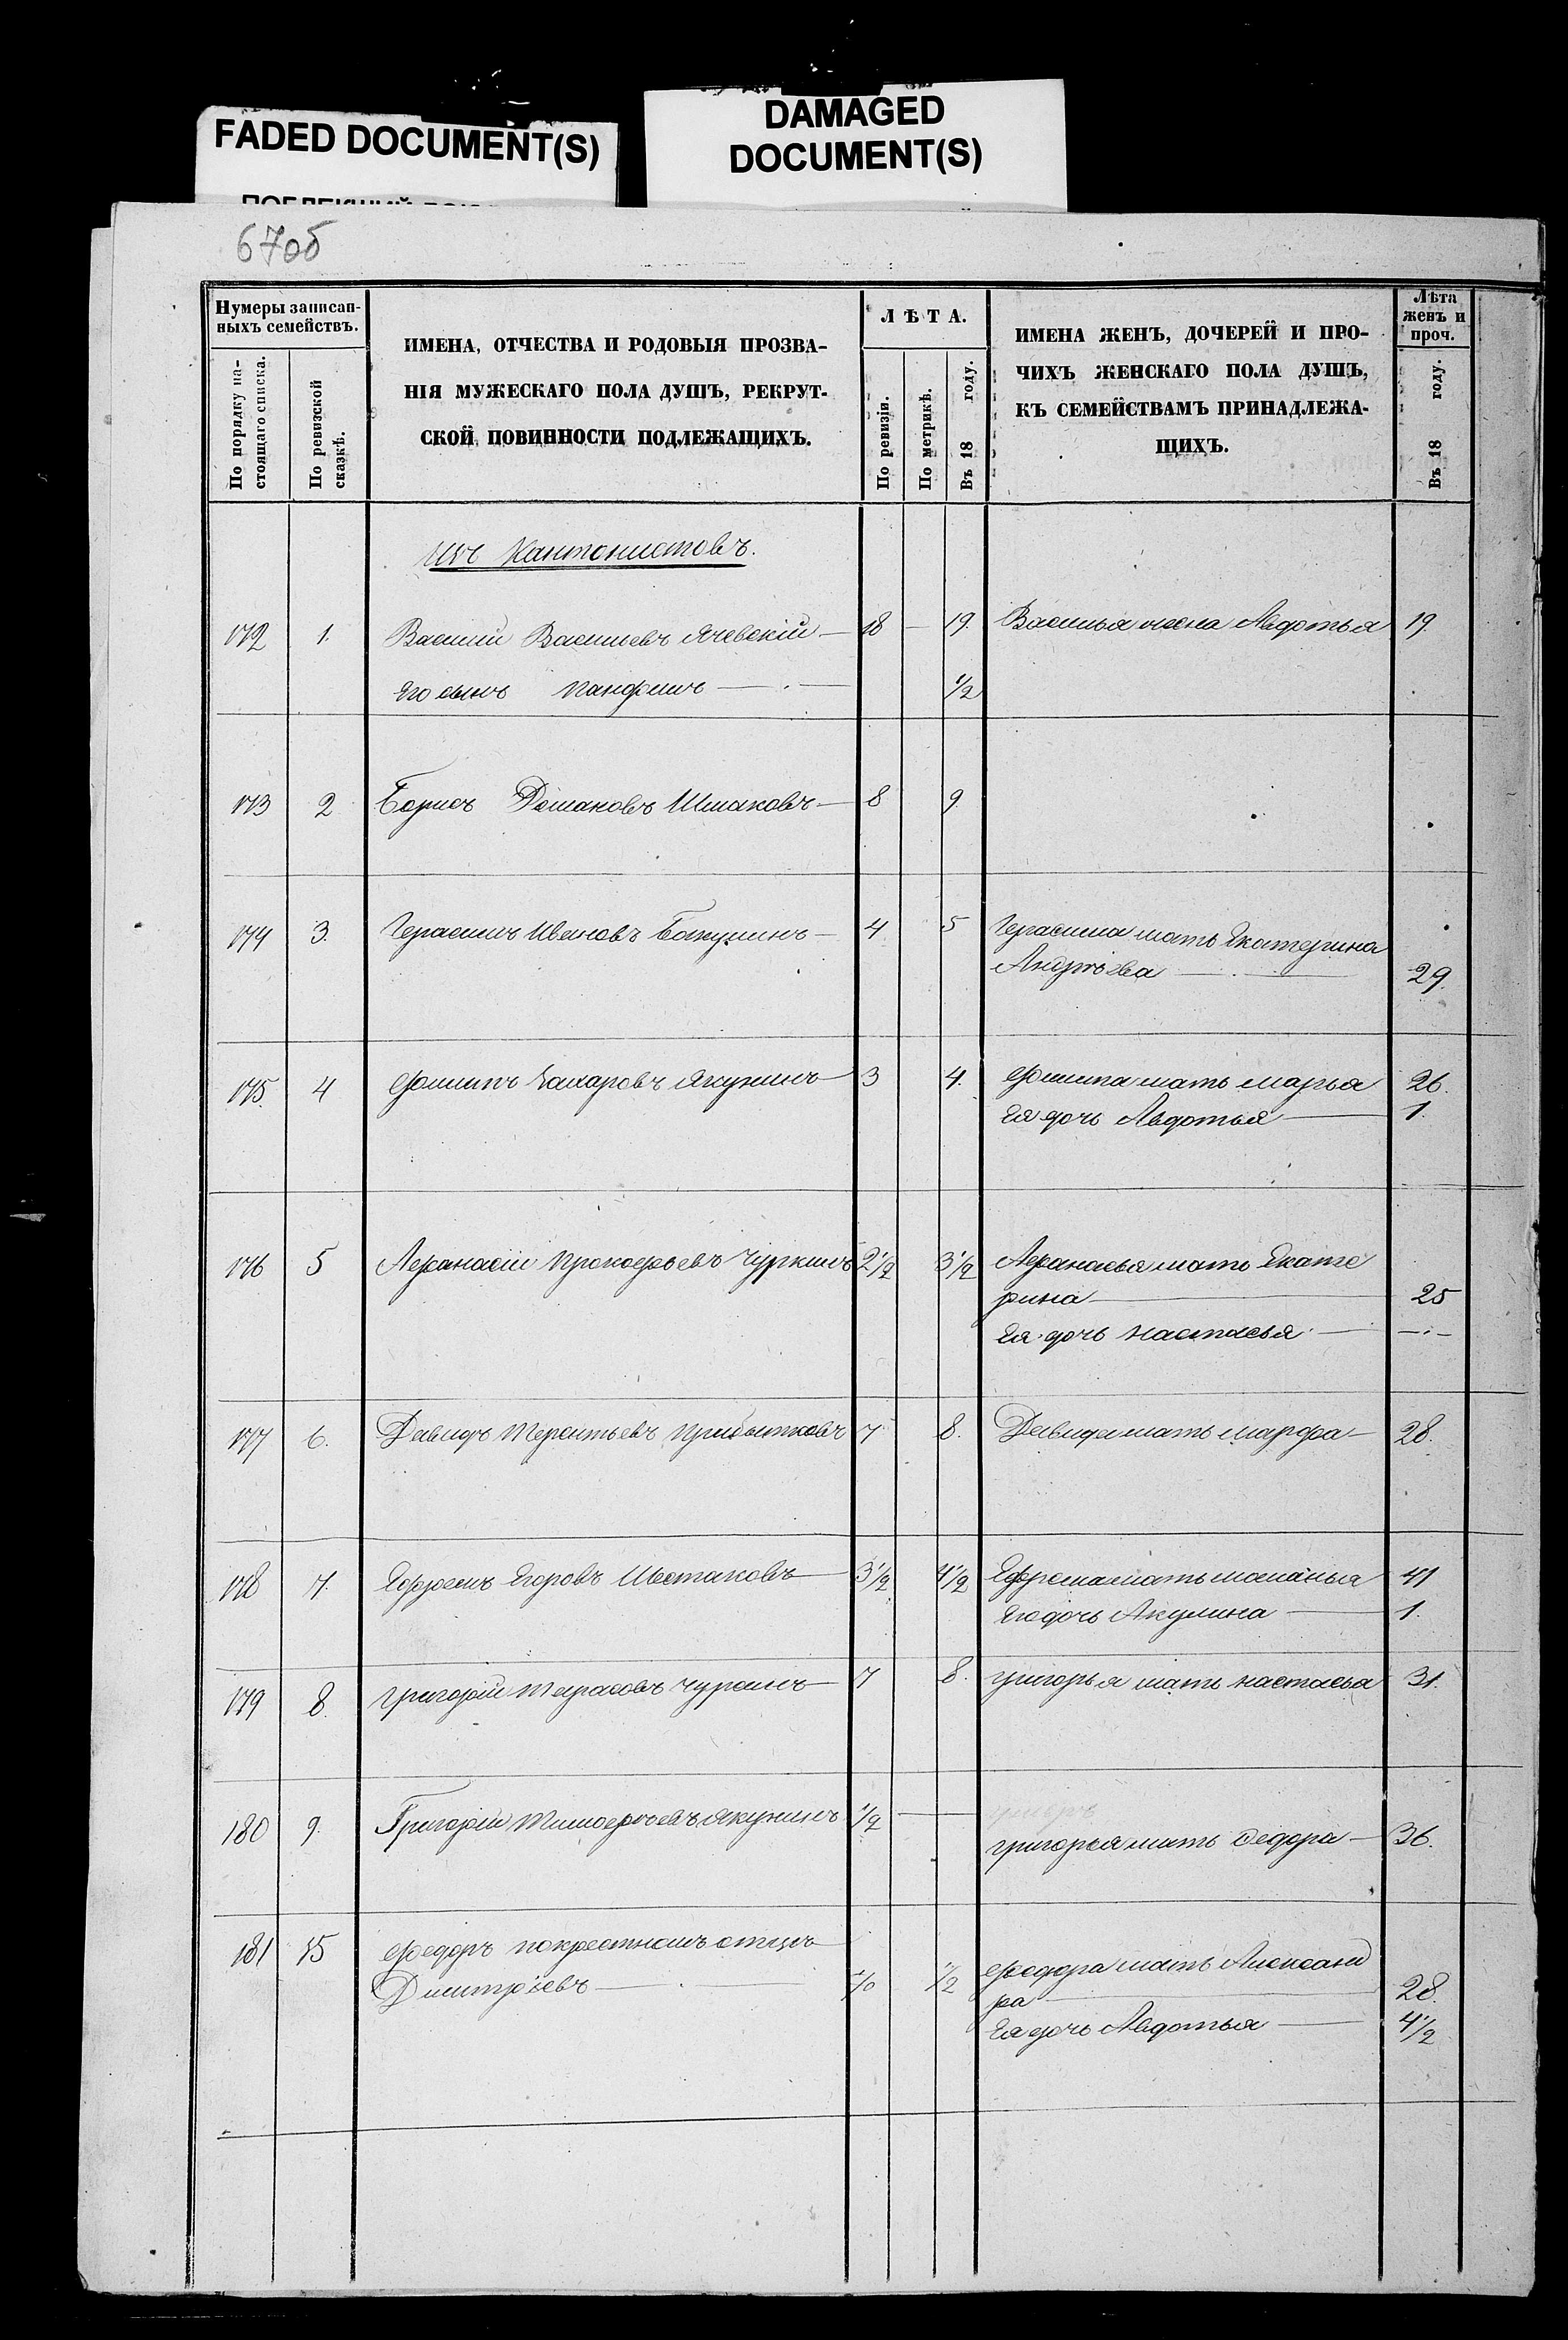 FADED DOCUMENT(S)
DAMAGED
DOCUMENT(S)
67об
Нумеры записан-
ныхъ семействъ.
По порядку на-
стоящаго списка.
По ревизской
сказкѣ.
ИМЕНА, ОТЧЕСТВА И РОДОВЫЯ ПРОЗВА-
НІЯ МУЖЕСКАГО ПОЛА ДУШЪ, РЕКРУТ-
СКОЙ ПОВИННОСТИ ПОДЛЕЖАЩИХЪ.
ЛѢТА.
По ревизіи.
По метрикѣ.
Въ 18 году.
ИМЕНА ЖЕНЪ, ДОЧЕРЕЙ И ПРО-
ЧИХЪ ЖЕНСКАГО ПОЛА ДУШЪ,
КЪ СЕМЕЙСТВАМЪ ПРИНАДЛЕЖА-
ЩИХЪ.
Лѣта
женъ и
проч.
Въ 18 году.
Изъ Кантонистовъ.
172 1. Василій Васильевъ Ячевскій — 18 — 19. Василья жена Авдотья 19.
Его сынъ Панфилъ — 1/2
173 2 Борисъ Шмаковъ — 8 9
174 3. Герасимъ Ивановъ — 4 5 Герасима мать Екатерина
Андрѣева — 29.
175. 4 Филипъ Захаровъ Якунинъ 3 4. Филипа мать Марья 26.
Ея дочь Авдотья — 1.
176 5 Афанасій Прокофьевъ Чуркинъ 2 1/2 3 1/2 Афанасья мать Екате
рина — 25
Ея дочь Настасья — —
177 6. Давидъ Терентьевъ Прибытковъ 7 8. Давида мать Марфа — 28.
178 7. Ефремъ Егоровъ Шестаковъ 3 1/2 4 1/2 Ефрема мать Маланья 41
Его дочь Акулина — 1.
179 8. Григорій Тарасовъ 7 8. Григорья мать Настасья 31.
180 9. Григорій Тимофѣевъ Якунинъ 1/2 —
Григорья мать Федора — 36.
181 15 Федоръ по крестномъ отцѣ
Дмитріевъ — 1/2 Федора мать Александ
ра — 28.
Ея дочь Авдотья — 4 1/2